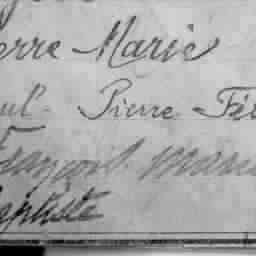 erre Marie
Pierre Fé
François Marie
aptiste